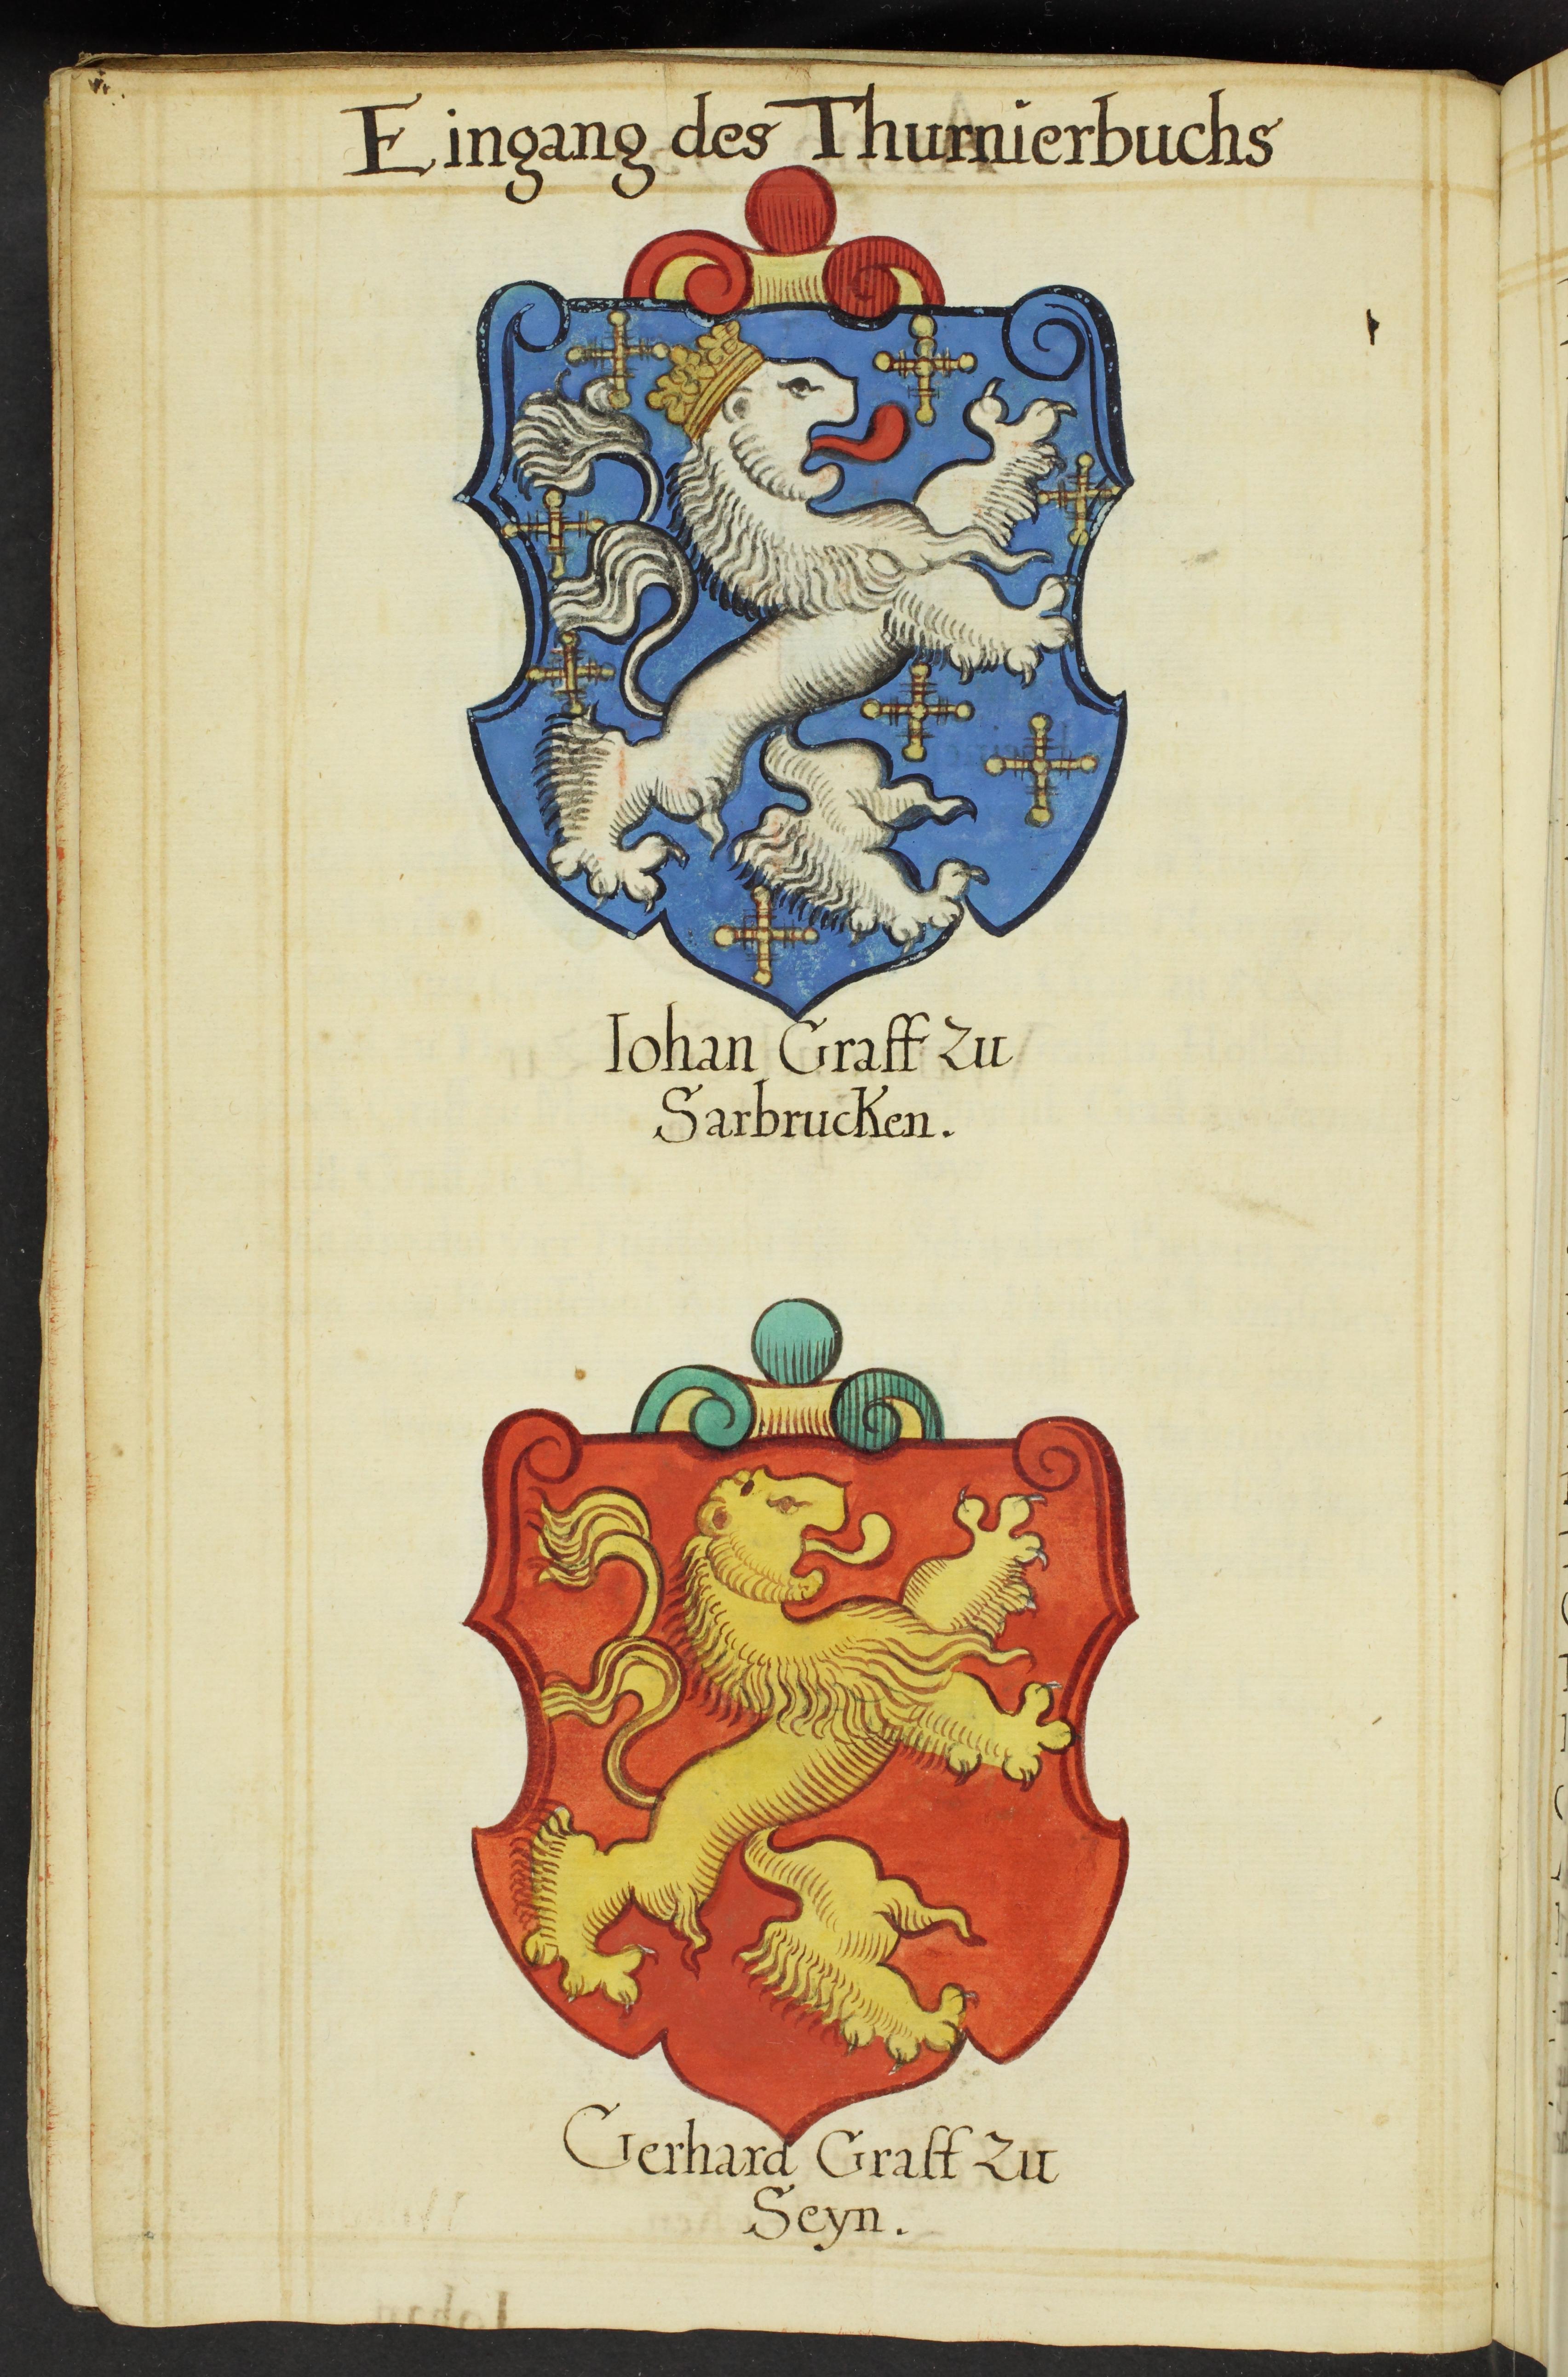 Eingang des Thurnierbuchs
Iohan Graff zu
Sarbrucken.
Gerhard Graff zu
Seyn.